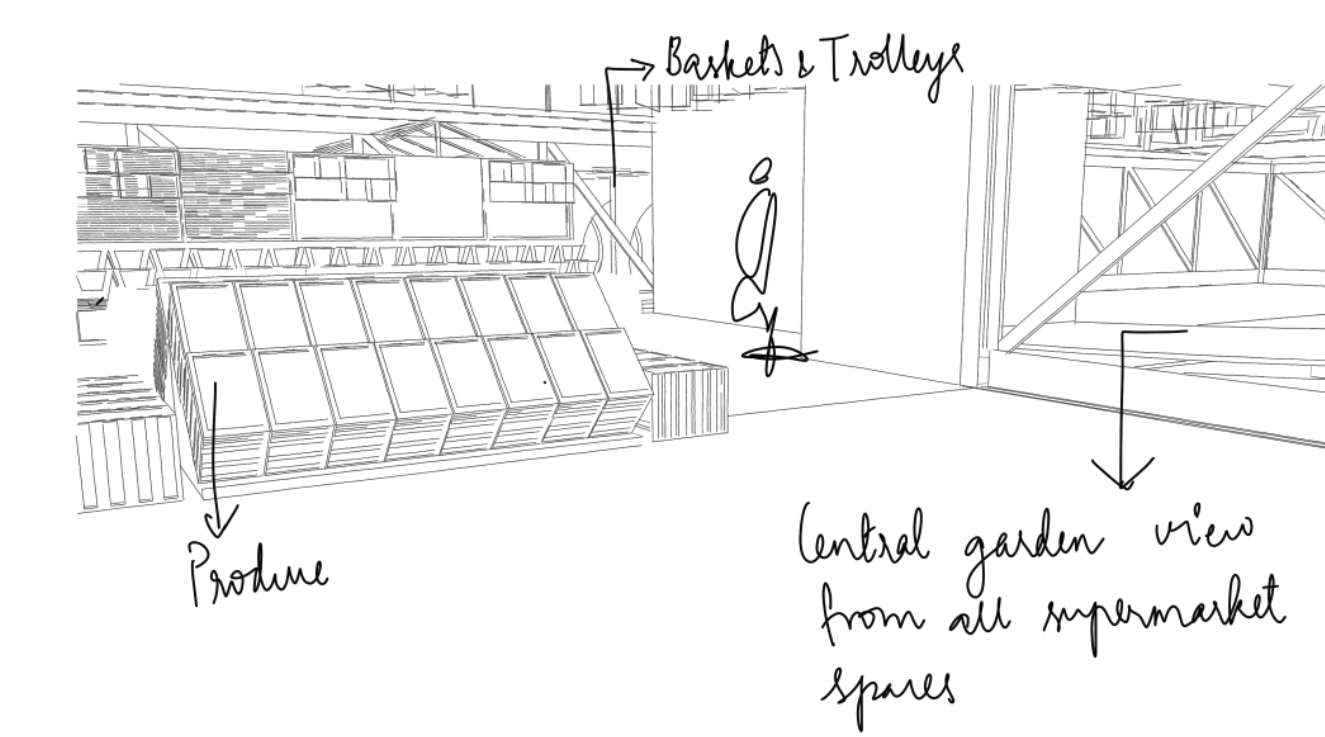 Baskets & Trolleys
Produce
Central garden view
from all supermarket
spaces